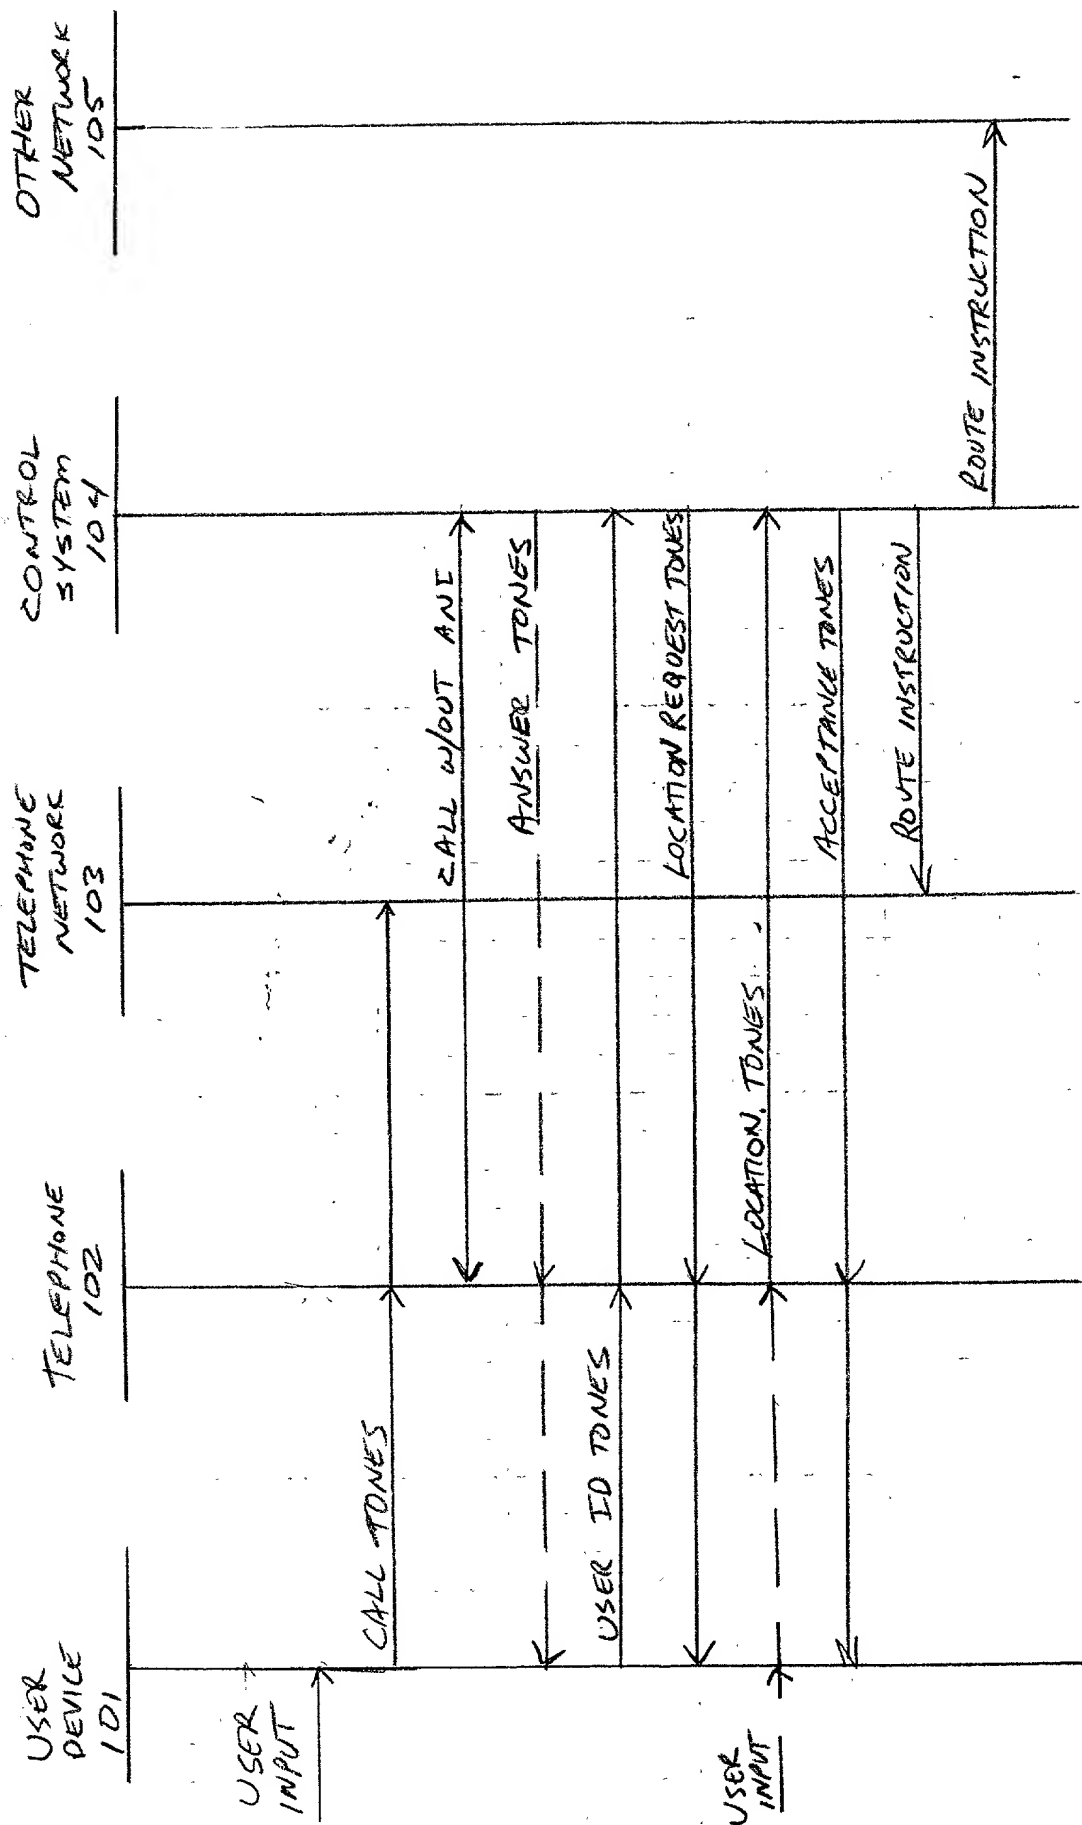 USER
DEVICE
101
TELEPHONE
102
TELEPHONE
NETWORK
103
CONTROL
SYSTEM
104
OTHER
NETWORK
105
USER
INPUT
CALL TONES
CALL W/OUT ANI
ANSWER TONES
USER ID TONES
LOCATION REQUEST TONES
USER
INPUT
LOCATION TONES
ACCEPTANCE TONES
ROUTE INSTRUCTION
ROUTE INSTRUCTION